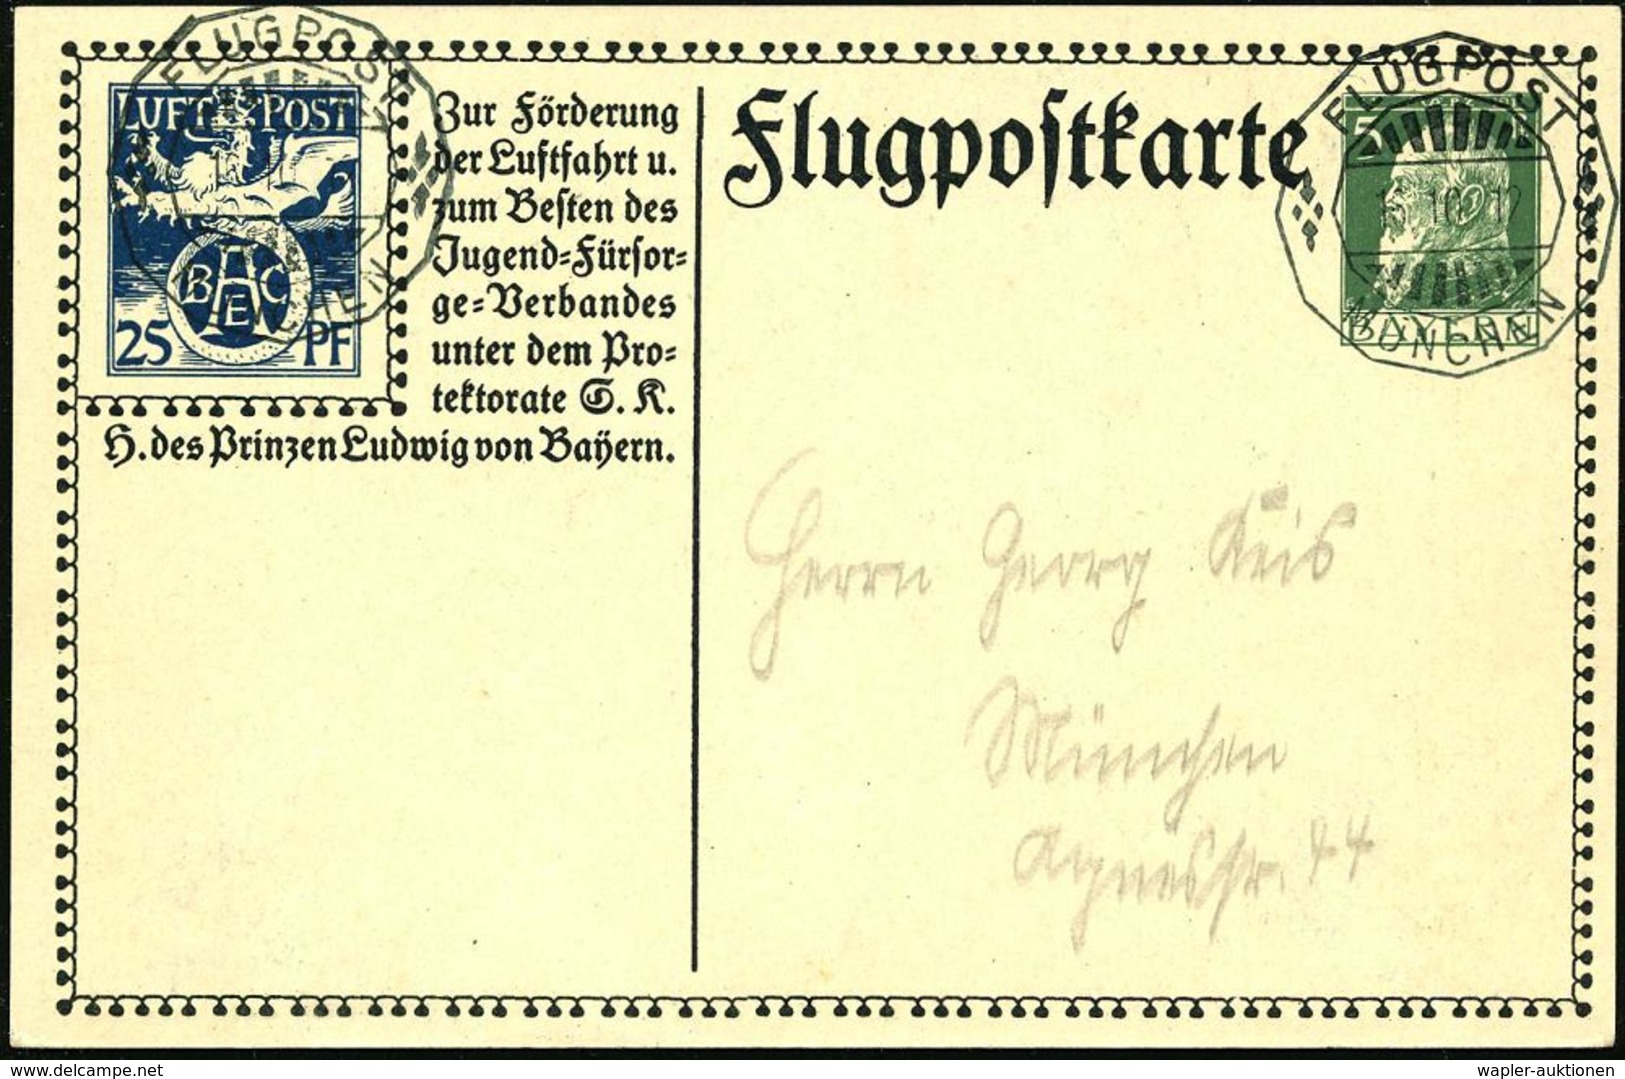 FLUGPOST
MÜNCHEN
LUFT POST
BAEC
25 PF
Zur Förderung
der Luftfahrt u.
zum Besten des
Jugend=Fürsor=
ge=Verbandes
unter dem Pro=
tektorate S. K.
H. des Prinzen Ludwig von Bayern.
Flugpostkarte
FLUGPOST
10 12
MÜNCHEN
5
BAYERN
Herrn Georg Keis
München
Agnesstr. 44
www.delcampe.net
wapler-auktionen